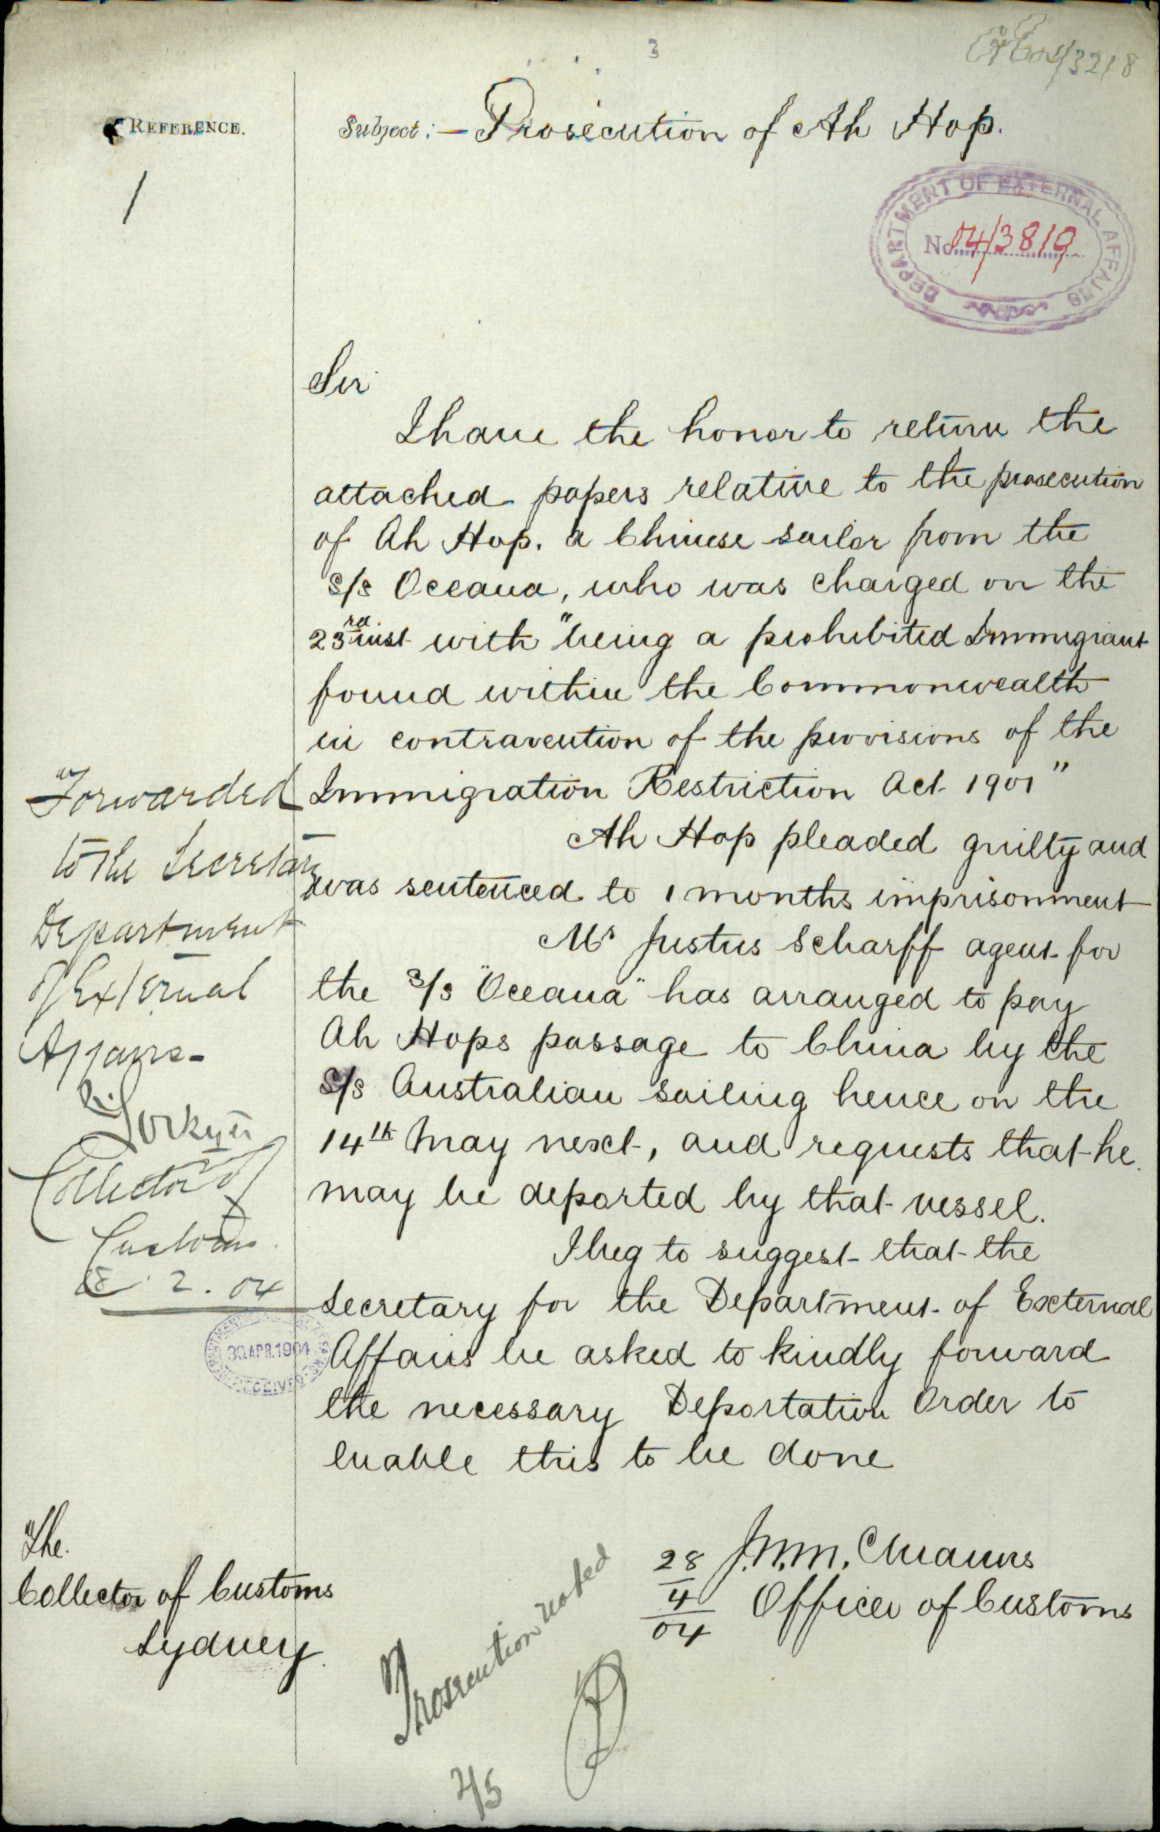 3
REFERENCE.
1
Subject:— Prosecution of Ah Hop.
DEPARTMENT OF EXTERNAL AFFAIRS
No 04/3819
Sir
I have the honor to return the
attached papers relative to the prosecution
of Ah Hop. a Chinese sailor from the
S/S Oceana, who was charged on the
23rd inst with "being a prohibited Immigrant
found within the Commonwealth
in contravention of the provisions of the
Immigration Restriction Act 1901"
Ah Hop pleaded guilty and
was sentenced to 1 months imprisonment
Mr Justus Scharff agent for
the S/S "Oceana" has arranged to pay
Ah Hops passage to China by the
S/S Australian sailing hence on the
14th May next, and requests that he
may be deported by that vessel.
I beg to suggest that the
Secretary for the Department of External
Affairs be asked to kindly forward
the necessary Deportation Order to
enable this to be done
28/4/04
Officer of Customs
Forwarded
to the Secretary
Department
of External
Affairs
Collector of
Customs
2.04
30 APR. 1904
RECEIVED
The
Collector of Customs
Sydney.
Prosecution noted
2/5